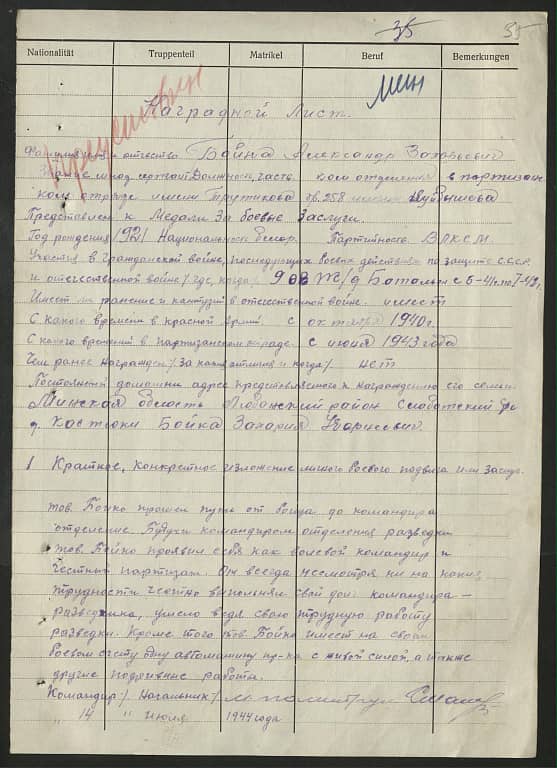 35 35
Nationalität Truppenteil Matrikel Beruf Bemerkungen
Наградной Лист.
Фамилия и отчество Бойко Александр Захарьевич
Должность, часть ком отделения в партизан
ском отряде имени бр. 258 имени Куйбышова
Представлен к Медали За боевые Заслуги.
Год рождения 1921 Национальность белор. Партийность ВЛКСМ.
Участие в гражданской войне, последующих боевых действиях по защите С.С.С.Р.
и отечественной войне / где, когда / Ж/д Батальон с
Имеет ли ранение и контузий в отечественной войне. имеет
С какого времени в красной армии с октября 1940г.
С какого времени в партизанском отряде. с июня 1943 года
Чем ранее награжден / За какие отличия и когда / нет
Постоянный домашний адрес представляемого к награждению его семьи.
Минская область Любанский район
д. Костюки Бойка Захарий Борисович.
1 Краткое, конкретное изложение личного боевого подвига или заслуг.
тов. Бойко прошел путь от бойца до командира
отделение. Будучи командиром отделения разведки
тов. Бойко проявил себя как волевой командир и
честный партизан. Он всегда несмотря ни на какие
трудности честно выполнял свой долг командира –
разведчика, умело ведя свою трудную работу
разведки. Кроме того тов Бойко имеет на своем
боевом счету одну автомашину пр-ка с живой силой, а также
другие подрывные работа.
Командир / Начальник /
„ 14 „ июля 1944 года